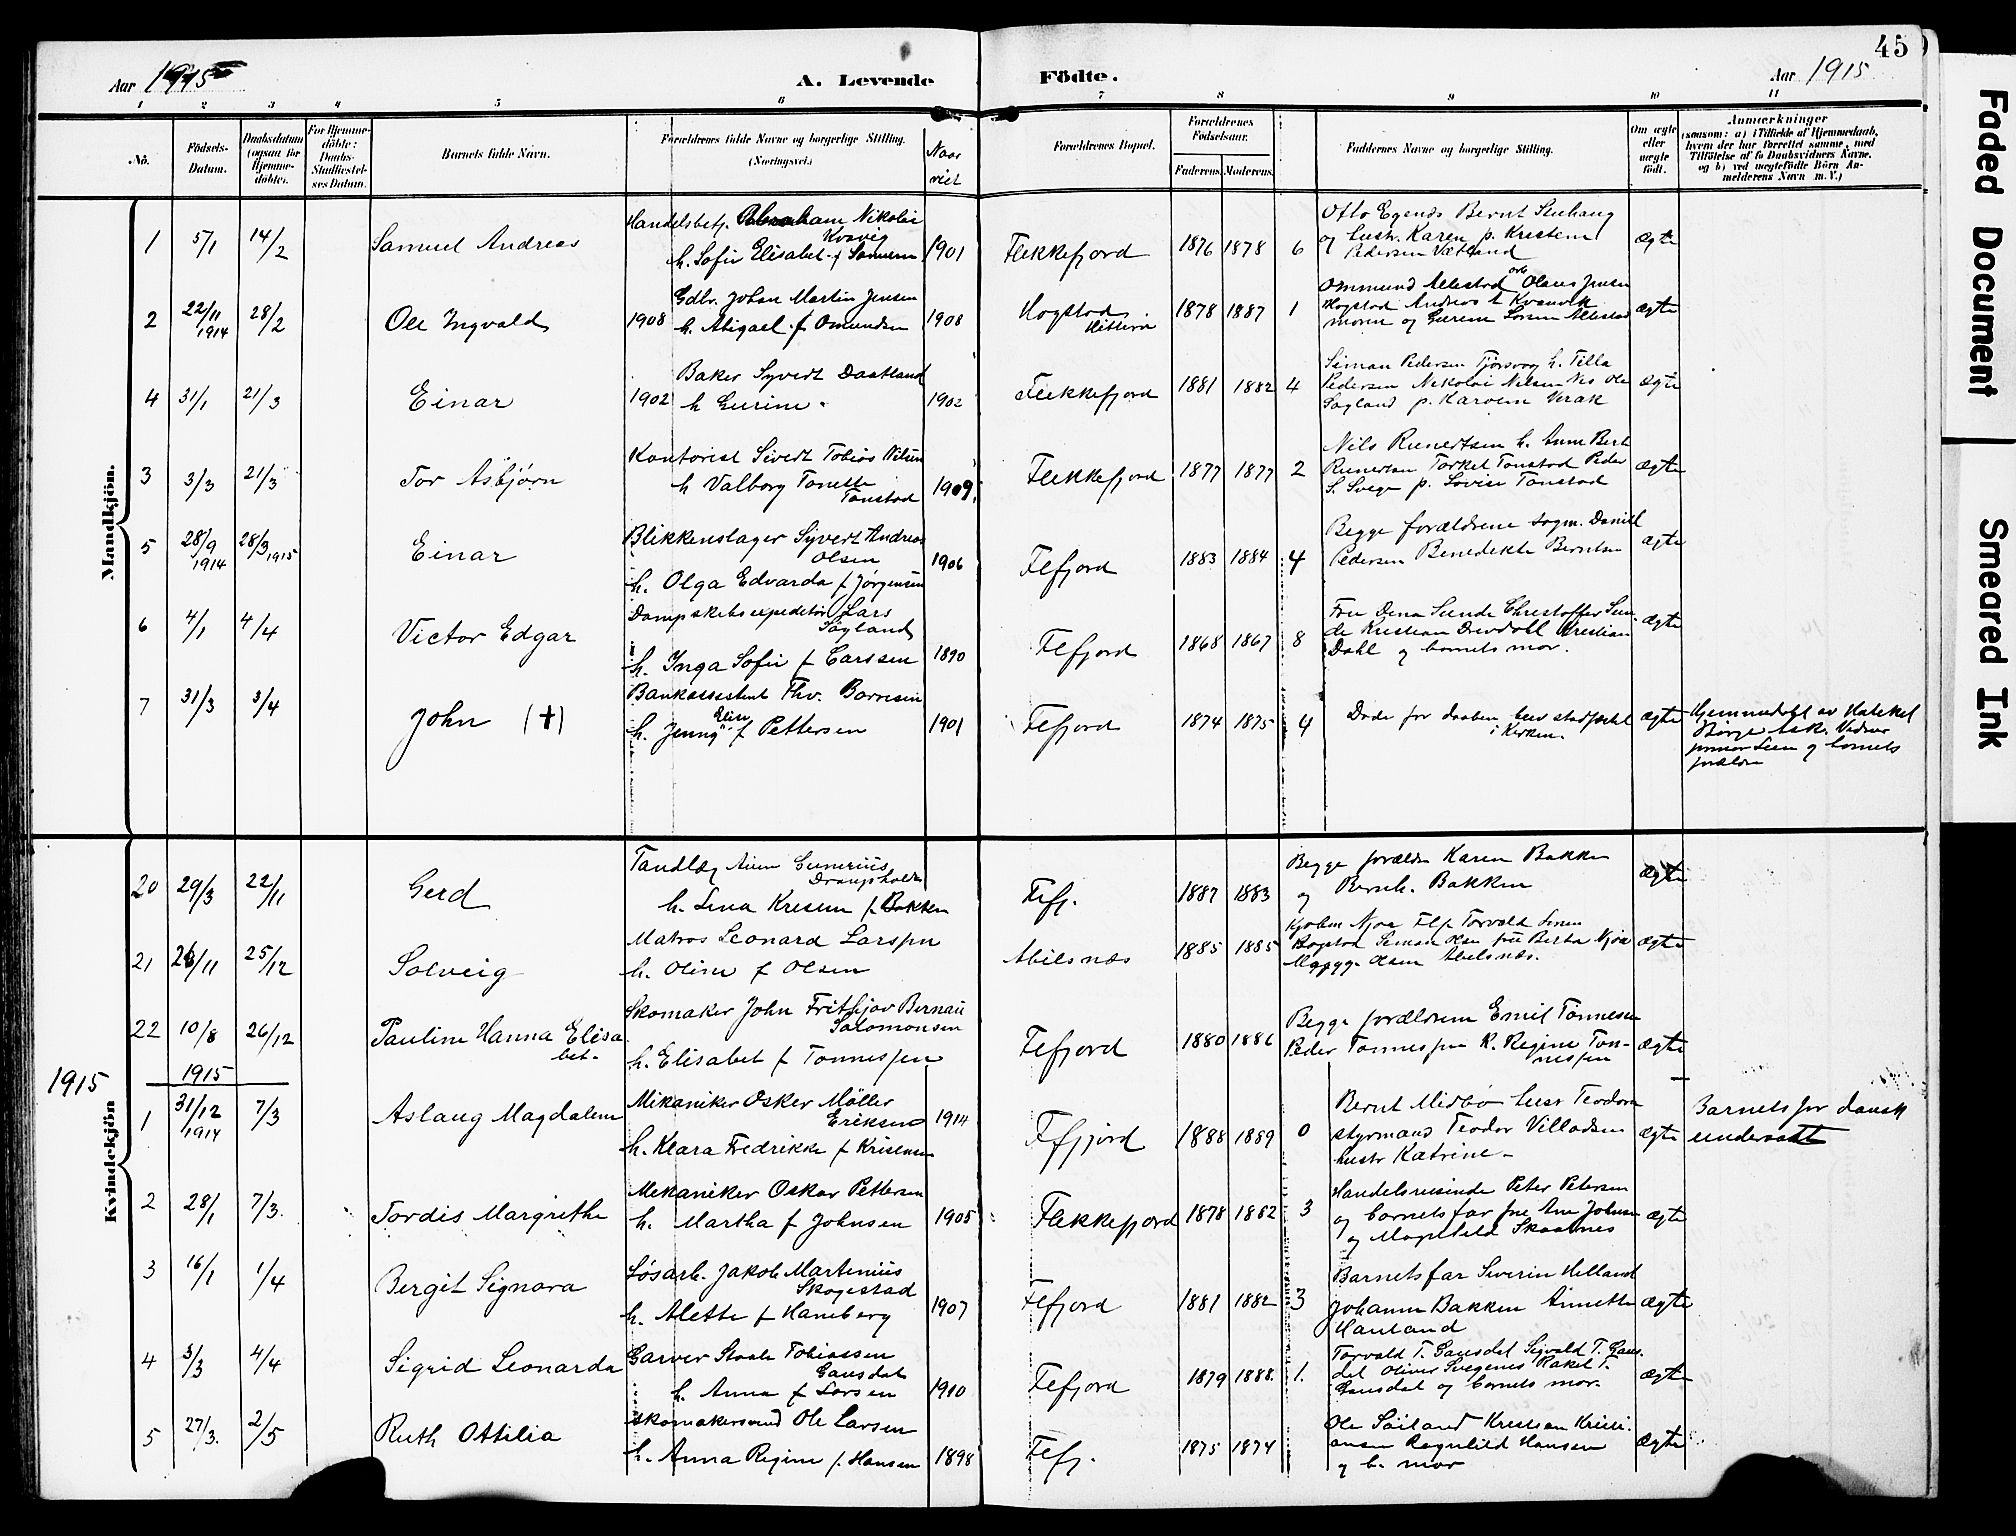 45
Aar 1915
A. Levende
Födte.
Aar 1915
1 2 3 4 5 6 7 8 9 10 11
No.
Födsels-
Datum.
Daabsdatum
(ogsaa for
Hjemme-
döbte).
For Hjemme-
döbte:
Daabs-
Stadfæstel-
ses Datum.
Barnets fulde Navn.
Forældrenes fulde Navne og borgerlige Stilling.
(Næringsvei.)
Naar
viet
Forældrenes Bopæl.
Forældrenes
Födselsaar.
Faderens. Moderens.
Faddernes Navne og borgerlige Stilling.
Om ægte
eller
uægte
födt.
Anmærkninger
(saasom: a) i Tilfælde af Hjemmedaab,
hvem der har forrettet samme, med
Tilföielse af to Daabsvidners Navne,
og b) ved uægtefödte Börn An-
melderens Navn m. V.)
Mandkjön.
1 5/1 14/2 Samuel Andreas
Handelsbetj. Abraham Nikolai
Kvavig
h. Sofie Elisabet f. 1901 Flekkefjord 1876 1878 6
Otto Egenes Bernt Stuhaug
og hustr. Karen p. Kristine
Pedersen Vatland
ægte
2 22/11 1914 28/2 Ole Ingvald
1908 Gdbr. Johan Martin Jensen
h. Abigael f. Omundsen 1908
Hogstad
Hitterø
1878 1887 1
Ommund Allestad Olaus Jensen
Hogstad Andreas Kvanvik
moren og Gurine Allestad
ægte
4 31/1 21/3 Einar
1902 Baker Syvert Daatland
h Gurine 1902
Flekkefjord 1881 1882 4
Simon Pedersen Tjørsvog h. Tilla
Pedersen Nikolai Nilsen Ole
Søyland p. Karoline Verak
ægte
3 3/3 21/3 Tor Asbjørn
Kontorist Sivert Tobias Nilsen
h Valborg Tonette
Tonstad 1909.
Flekkefjord 1877 1877 2
Nils Reinertsen h. Anne Bert
Reinertsen Torkel Tonstad Peder
S. Svege p. Lovise Tonstad
ægte
5 28/9 1914 28/3 1915 Einar
Blikkenslager Syvert Andreas
Olsen
h. Olga Edvarda f Jørgensen 1906
Flfjord 1883 1884 4
Begge forældrene sogm. Daniel
Pedersen Benedikte Berntsen
ægte
6 4/1 4/4 Victor Edgar
Dampskibsexpeditør Lars
Søyland
h. Inga Sofie f Larssen 1890
Flfjord 1868 1867 8
Fru Dina Sunde Christoffer Sun-
de Kristian Drevdahl Kristian
Dahl og barnets mor.
ægte
7 31/3 3/4 John (†)
Bankassistent Thv. Borresen
h. Jenny Elise f Pettersen 1901
Flfjord 1874 1875 4
Døde før daaben blev stadfestet
i Kirken.
ægte
Hjemmedøbt av Kateket
Børge Ask. Vidner
og barnets
forældre
Kvindekjön
20 29/3 22/11 Gerd
Tandlæg
h. Lina f. Bakken
Flfj. 1887 1883
Begge forældre Karen Bakken
og Bernh. Bakken
ægte
21 26/11 25/12 Solveig
Matros Leonard Larssen
h. Oline f Olsen
Abilsnæs 1885 1885
Torvald
Simon Olsen fru Berta Njøs
Magny Olsen Abelsnæs.
ægte
22 10/8 26/12 Pauline Hanna Elisa
bet.
Skomaker John Frithjov Bernau
Salomonsen
h. Elisabet f Tonnessen
Flfjord 1880 1886
Begge forældrene Emil Tonnesen
Peder Tonnessen K. Regine Ton-
nessen
ægte
1915
1915
1 31/12 1914 7/3 Aslaug Magdalene
Mekaniker Osker Møller
Eriksen 1914
h. Klara Fredrikke f Krisensen
Flfjord 1888 1889 0
Bernt Midbø hustr Teodora
styrmand Teodor Villadsen
hustr Katrine
ægte
Barnets far dansk
undersaat
2 28/1 7/3. Tordis Margrethe
Mekaniker Oskar Pettersen
h. Martha f Johnsen 1905
Flekkefjord 1878 1882 3
Handelsreisende Peter Petersen
og barnets far frk Ane Johnsen
og Magnhild Skaanes
ægte
3 16/1 1/4 Bergit Signora
Løsarb. Jakob Martinius
Skogestad
h. Alette f Haneberg 1907
Flfjord 1881 1882 3
Barnets far Severin Helland
Johanne Bakken Annette
Hauland
ægte
4 3/3 4/4 Sigrid Leonarda
Garver Staale Tobiassen
Gausdal
h. Anna f Larsen 1910
Flefjord 1879 1888. 1.
Torvald T. Gausdal Sigvald T. Gaus-
dal Oliver Svegenes Rakel T.
Gausdal og barnets mor.
ægte
5 27/3. 2/5 Ruth Ottilia
Skomakersvend Ole Larsen
h. Anna Regine f. Hansen 1898
Flefj. 1875 1874
Ole Søiland Kristian Kristi-
ansen Ragnhild Hansen
og b. mor
ægte
Faded Document
Smeared Ink